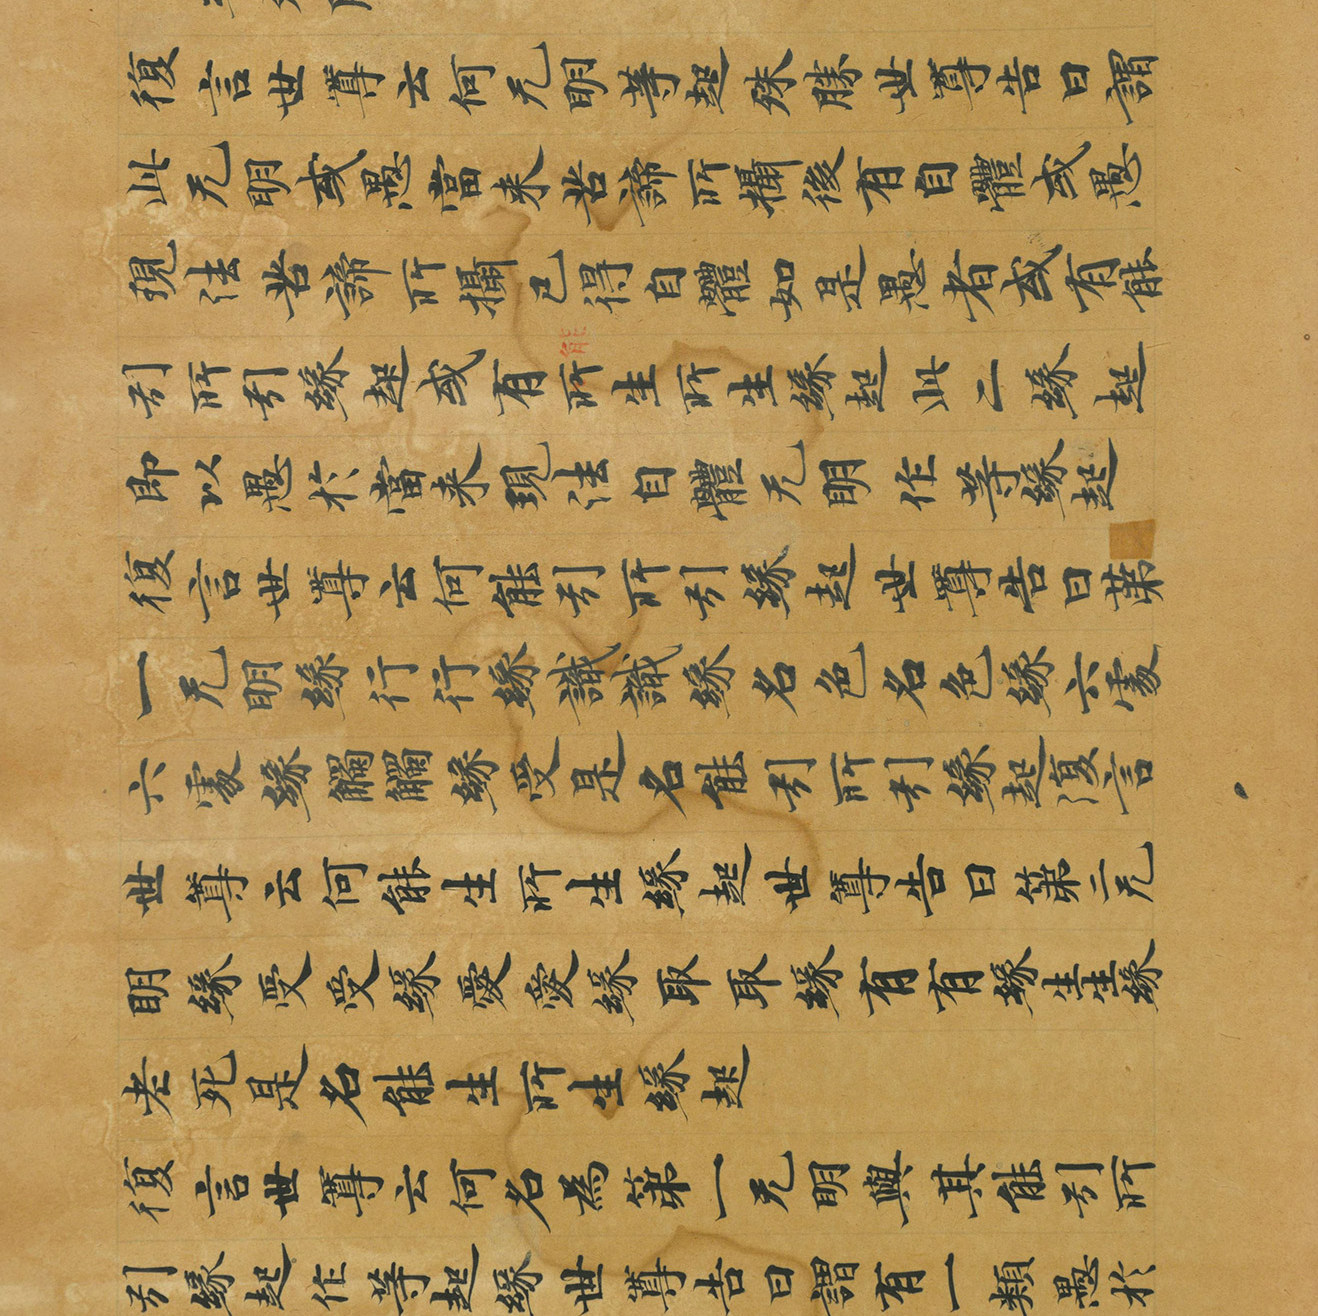 復言世尊云何无明等起殊勝世尊告曰謂
此无明或愚當来苦諦所攝後有自體或愚
現法苦諦所攝已得自體如是愚者或有能
能
引所引緣起或有所生所生緣起此二緣起
即以愚於當来現法自體无明作等緣起
復言世尊云何能引所引緣起世尊告曰苐
一无明緣行行緣識識緣名色名色緣六處
六處緣觸觸緣受是名能引所引緣起復言
世尊云何能生所生緣起世尊告曰第二无
明緣受受緣愛愛緣取取緣有有緣生生緣
老死是名能生所生緣起
復言世尊云何名為第一无明與其能引所
引緣起作等起緣世尊告曰謂有一類愚於